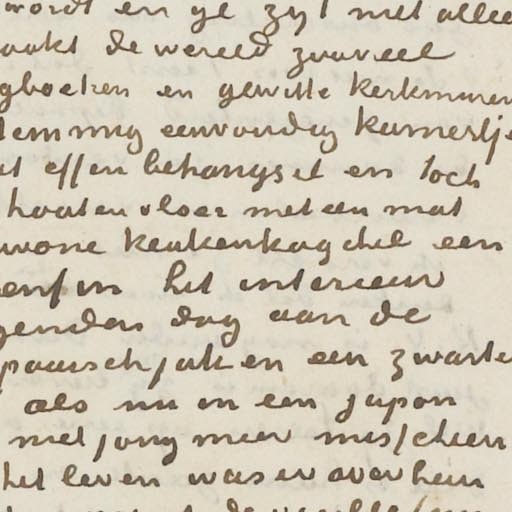 wordt en ge zyt niet allee
aakt de wereld zooveel
gboeken en gewitte kerkmuren
temmig eenvoudig kamertje
et effen behangsel en toch
houten vloer met een mat
wone keukenkachel een
enfin het interieur
genden dag aan de
paarsch jak en een zwarte
als nu in een japon
niet jong meer misschien
het leven was er over heen